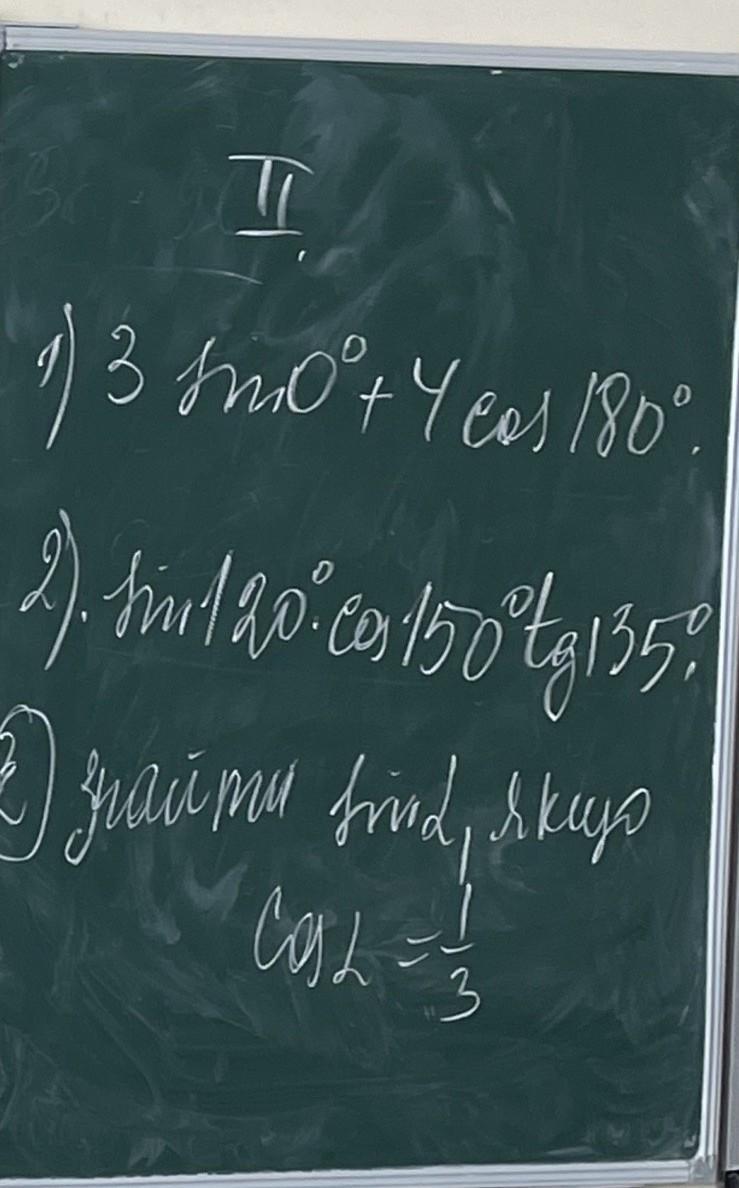 II.
1) 3 sin0° + 4 cos 180°.
2). sin120°·cos150°tg135°.
3) знайти sinα, якщо
cosα = 1/3